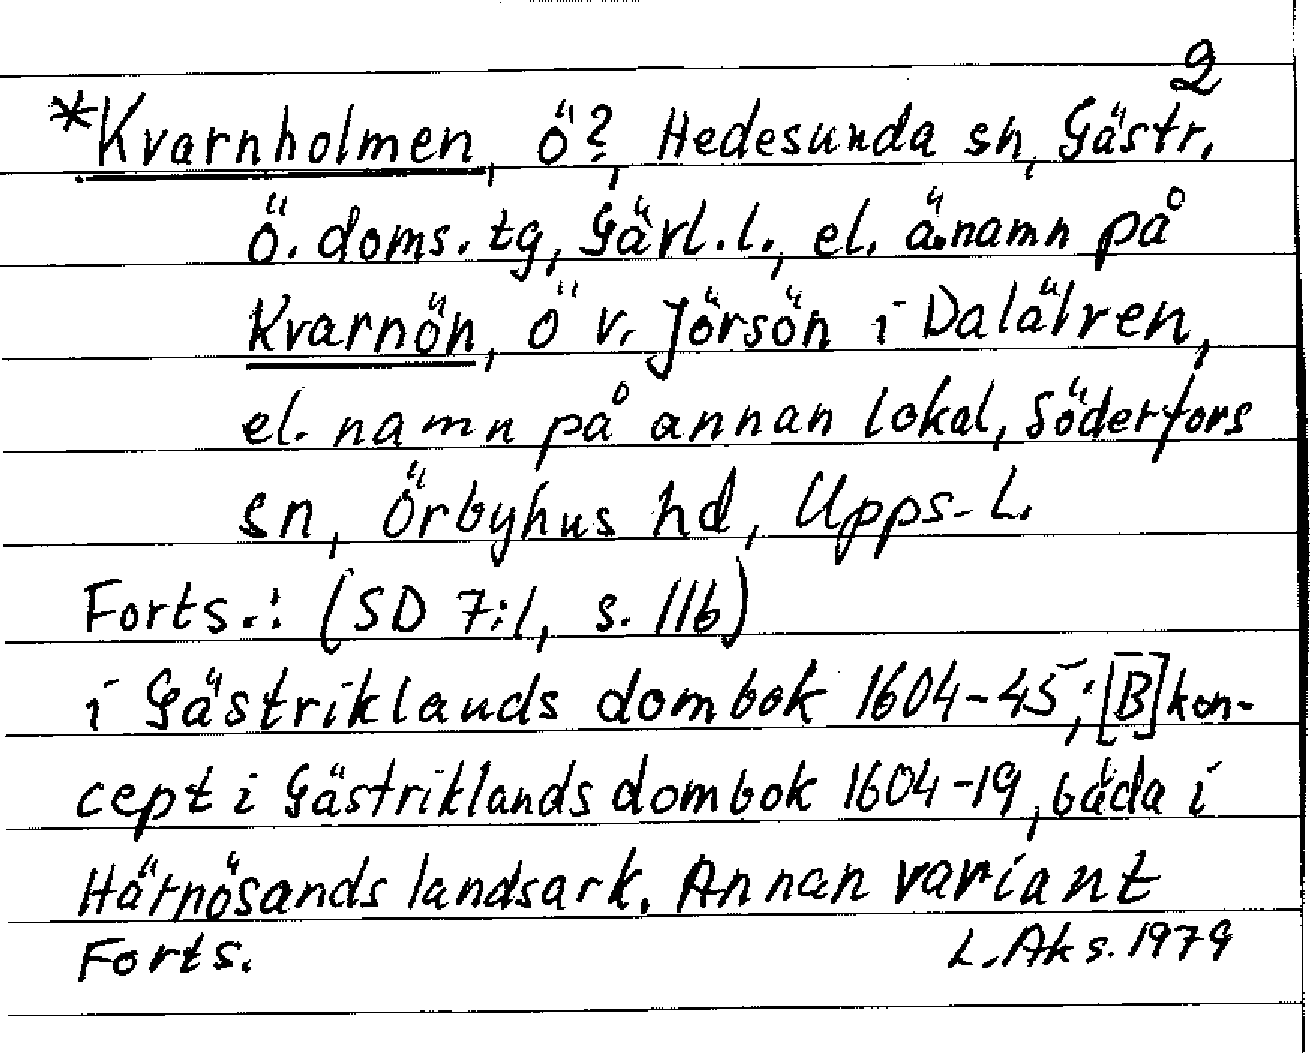 2
*Kvarnholmen, ö?, Hedesunda sn, Gästr.
Ö. doms. tg, Gävl. l., el. ä.namn på
Kvarnön, ö v. Jörsön i Dalälven,
el. namn på annan lokal, Söderfors
sn, Örbyhus hd, Upps. L.
Forts.: (SD 7:1, s. 116)
i Gästriklands dombok 1604-45; [B] kon-
cept i Gästriklands dombok 1604-19, båda i
Härnösands landsark. Annan variant
Forts. L. Aks. 1979